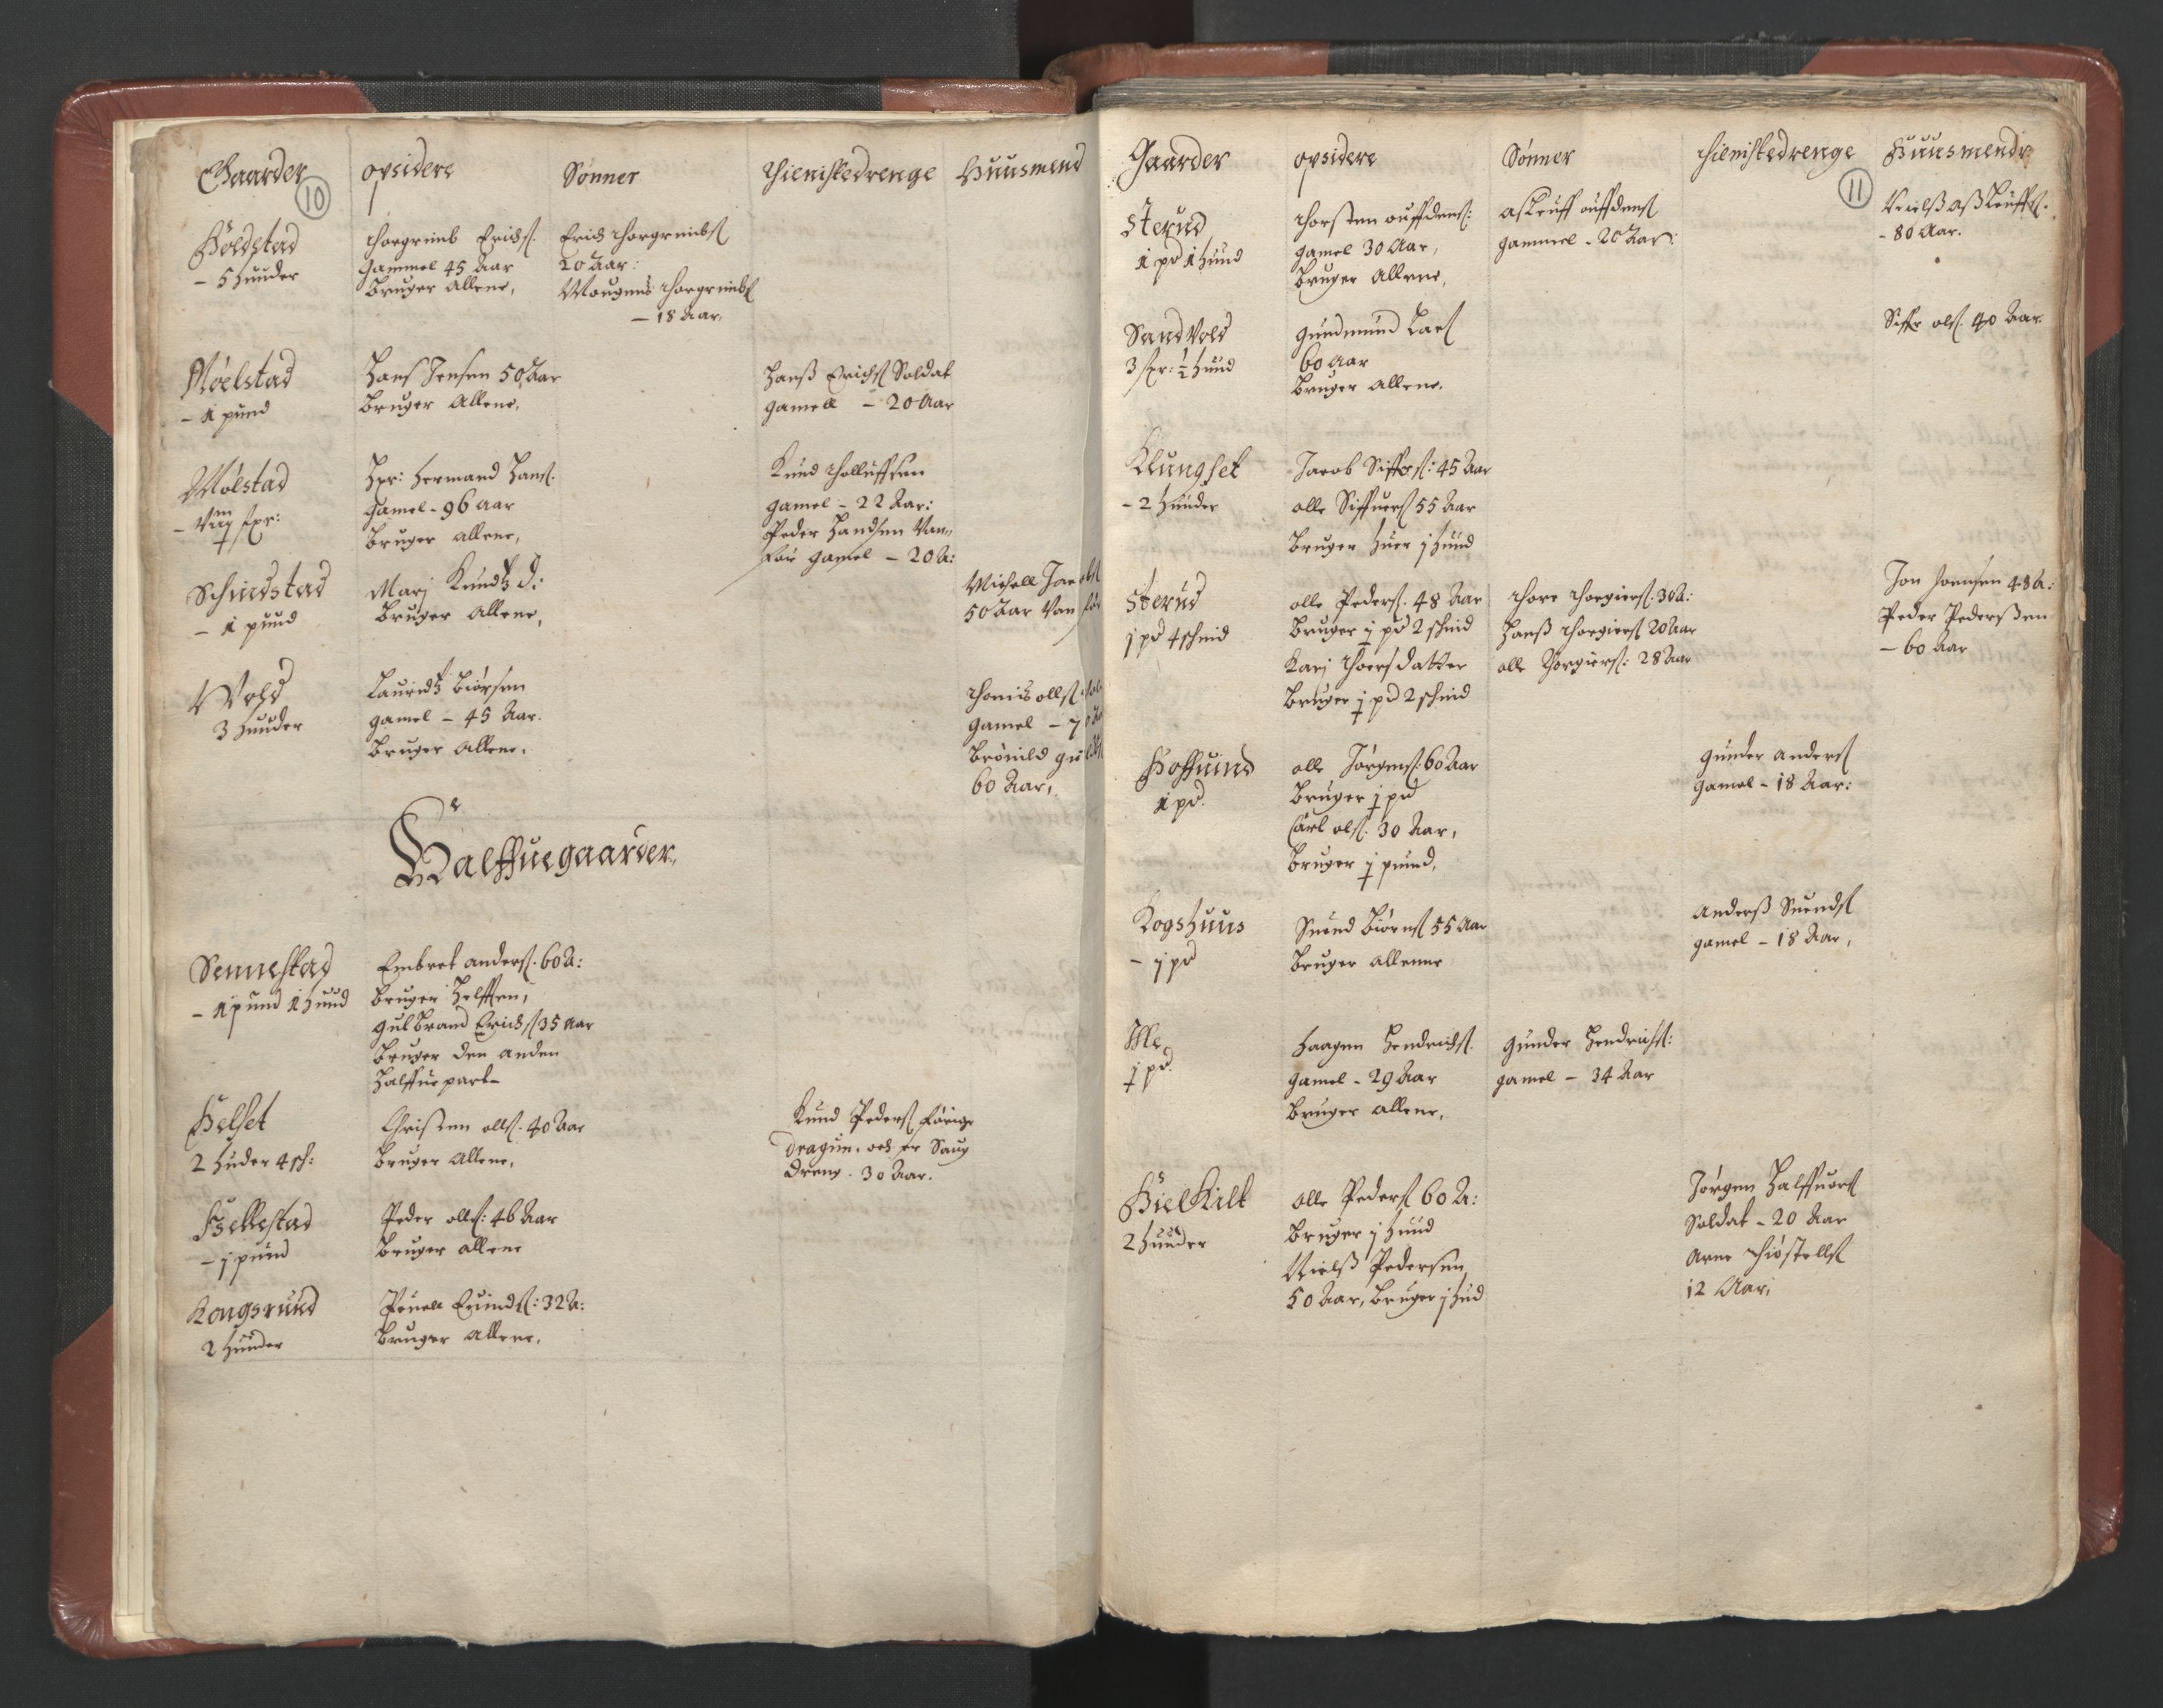 Gaarder
opsidere
Sønner
Thienistedrenge
Huusmend
10
Holdstad
- 5 hunder
Thorgrimb Erichs.
gammel 45 Aar
bruger allene,
Erich Thorgrimbs
20 Aar:
Mougens Thorgrimbs
- 18 Aar,
Nøelstad
- 1 pund
Hans Jensen 50 Aar
bruger allene,
Hanß Erichs Soldat
gamell - 20 Aar
Mølstad
Hr: Hermand Hans.
gamel - 96 aar
bruger allene,
Knud Tholluffsen
gamel - 22 Aar:
Peder Handsen Van-
før gamel - 20 A:
Schindstad
- 1 pund
Marj Knudtz d:
bruger allene,
Michell Jacobs
50 Aar Vanfør
Wold
3 hunder
Lauridtz Biørsen
gamel - 45 Aar.
bruger allene.
Thomis olls
gamel - 70 Aar
60 Aar,
Halffuegaarder,
Sennestad
- 1 pund 1 hund
Embret anders. 60 A:
bruger helfften,
Gulbrand Erichs 35 Aar
bruger den anden
halffue part-
Helset
2 huder 4 sk:
Christen olls. 40 Aar
bruger allene,
Knud Peders
dragun. och er Saug
dreng. 30 Aar.
Hellestad
- j pund
Peder olls: 46 Aar
bruger allene
Kongsrund
2 hunder
Pouell Euinds: 32 A:
bruger allene,
Gaarder
opsidere
Sønner
Thienistedrenge
Huusmendr
11
Sterud
1 pd 1 hund
Thorsten
gamel 30 Aar,
bruger allene,
gammel - 20 Aar:
Nielß Aßleuffs.
- 80 Aar.
Sandvold
3 fr: ½ hund
Gundmund Lars
60 aar
bruger allene.
Siffr ols. 40 Aar.
Klungset
- 2 hunder
Jacob Siffrs: 45 Aar
olle Siffuers 55 Aar
bruger huer j hund
Sterud
j pd 4 schind
olle Peders. 48 Aar
bruger ½ pd 2 schind
Karj Thoersdatter
bruger ½ pd 2 schind
Thore Thorgiers. 30 A:
Hanß Thorgiers 20 Aar
olle Thorgiers: 28 Aar
Jon Joensen 48 A:
Peder Pederßen
- 60 Aar
Hoffuind
1 pd.
olle Jørgens: 60 Aar
bruger ½ pd
Carl ols. 30 Aar,
bruger ½ pund,
Gunder anders
gamel - 18 Aar:
Kogshuus
- j pd
Suend Biørns 55 Aar
bruger allenne
Anderß Suends
gamel - 18 Aar,
Ille
½ pd.
Haagen Hendrichs.
gamel - 29 Aar
bruger allene,
Gunder Hendrichs:
gamel - 34 Aar
Hielkilt
2 hunder
olle Peders 60 A:
bruger j hund
Nielß Pedersen
50 Aar, bruger j hud
Jørgen Halffuors
Soldat - 20 Aar
Arne Thiøstells
12 Aar,